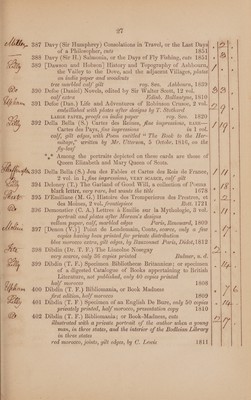 27
387 Davy (Sir Humphry) Consolations in Travel, or the Last Days
of a Philosopher, cuts 1851
388 Davy (Sir H.) Salmonia, or the Days of Fly Fishing, cuts 1851
389 [Dawson and Hobson] History and Topography of Ashbourn,
the Valley to the Dove, and the adjacent Villages, plates
on india paper and woodcuts
tree marbled calf gilt roy. 8vo. Ashbourn, 1839
390 Defoe (Daniel) Novels, edited by Sir Walter Scott, 12 vol.
calf extra Edinb. Ballantyne, 1810
391 Defoe (Dan.) Life and Adventures of Robinson Crusoe, 2 vol.
embellished with plates after designs by T. Stothard
LARGE PAPER, proofs on india paper roy. 8vo. 1820
392 Della Bella (S.) Cartes des Reines, fine impressions, RARE—
Cartes des Pays, fine impressions in 1 vol.
calf, gilt edges, with Poem entitled " The Book to the Her-
mitage," written by Mr. Utterson, 5 Octobr. 1816, on the
fly-leaf
*** Among the portraits depicted on these cards are those of
Queen Elizabeth and Mary Queen of Scots.
393 Della Bella (S.) Jeu des Fables et Cartes des Rois de France,
2 vol. in 1, fine impressions, VERY SCARCE, calf gilt
394 Deloney (T.) The Garland of Good Will, a collection of Poems
black letter, very rare, but wants the title 1678
395 D'Emiliane (M. G.) Histoire des Tromperies des Prestres, et
des Moines, 2 vol. frontispiece Rott. 1721
396 Demoustier (C. A.) Lettres à Emilie sur la Mythologie, 3 vol.
portrait and plates after Monnet's designs
vellum paper, calf, marbled edges Paris, Renouard, 1809
397 [Denon (V.)] Point de Lendemain, Conte, scarce, only a few
copies having been printed for private distribution
blue morocco extra, gilt edges, by Hammond Paris, Didot, 1812
398 Dibdin (Dr. T. F.) The Lincolne Nosegay
very scarce, only 36 copies printed Bulmer, n. d.
399 Dibdin (T. F.) Specimen Bibliothecæ Britannicæ; or specimen
of a digested Catalogue of Books appertaining to British
Literature, not published, only 40 copies printed
half morocco 1808
400 Dibdin (T. F.) Bibliomania, or Book Madness
first edition, half morocco 1809
401 Dibdin (T. F.) Specimen of an English De Bure, only 50 copies
privately printed, half morocco, presentation copy 1810
402 Dibdin (T. F.) Bibliomania; or Book-Madness, cuts
illustrated with a private portrait of the author when a young
man, in three states, and the interior of the Bodleian Library
in three states
red morocco, joints, gilt edges, by C. Lewis 1811